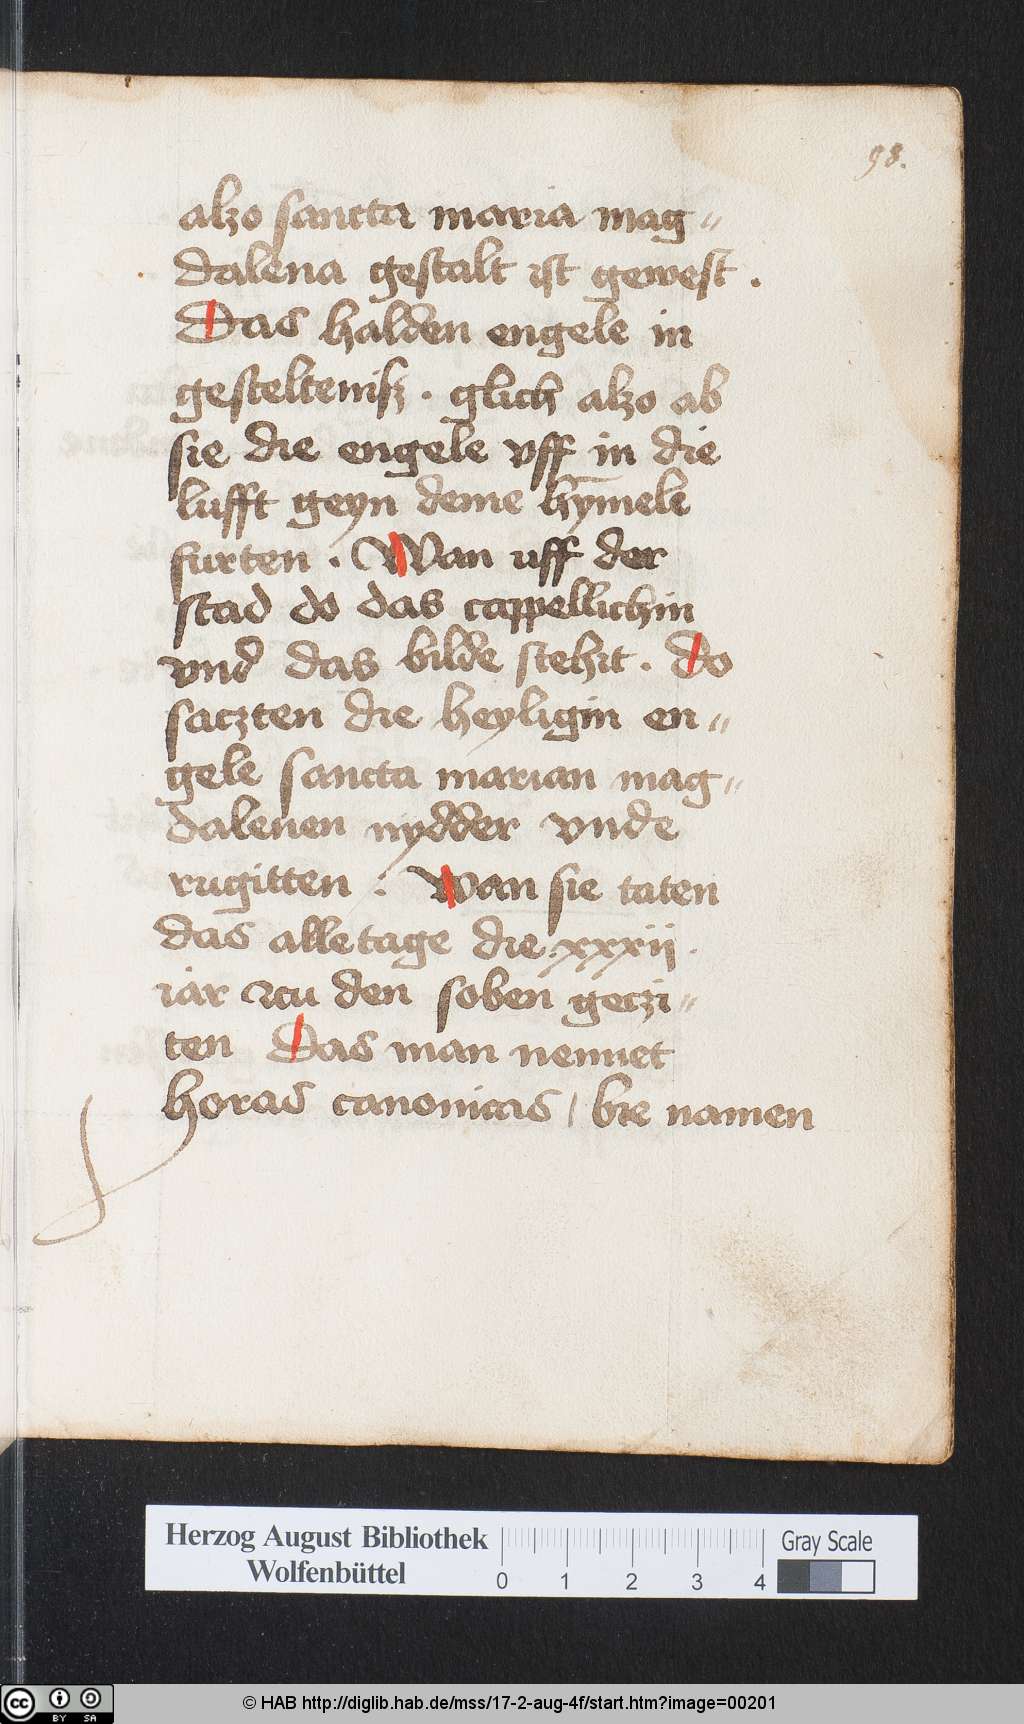 98.
alzo sancta maria mag〃
dalena gestalt ist gewest .
Das halden engele in
gesteltenisz . glich alzo ab
sie die engele vff in die
lufft geyn deme hȳmele
furten . Wan uff der
stad do das cappellichin
vnd das bilde stehit . Do
saczten die heyligin en〃
gele sancta marian mag〃
dalenen nydder vnde
rugitten : Wan sie taten
das alle tage die .xxxii .
iar zcu den soben geczi〃
ten Das man nennet
horas canonicas / bie namen
Herzog August Bibliothek
Wolfenbüttel
0 1 2 3 4
Gray Scale
cc BY SA
© HAB http://diglib.hab.de/mss/17-2-aug-4f/start.htm?image=00201